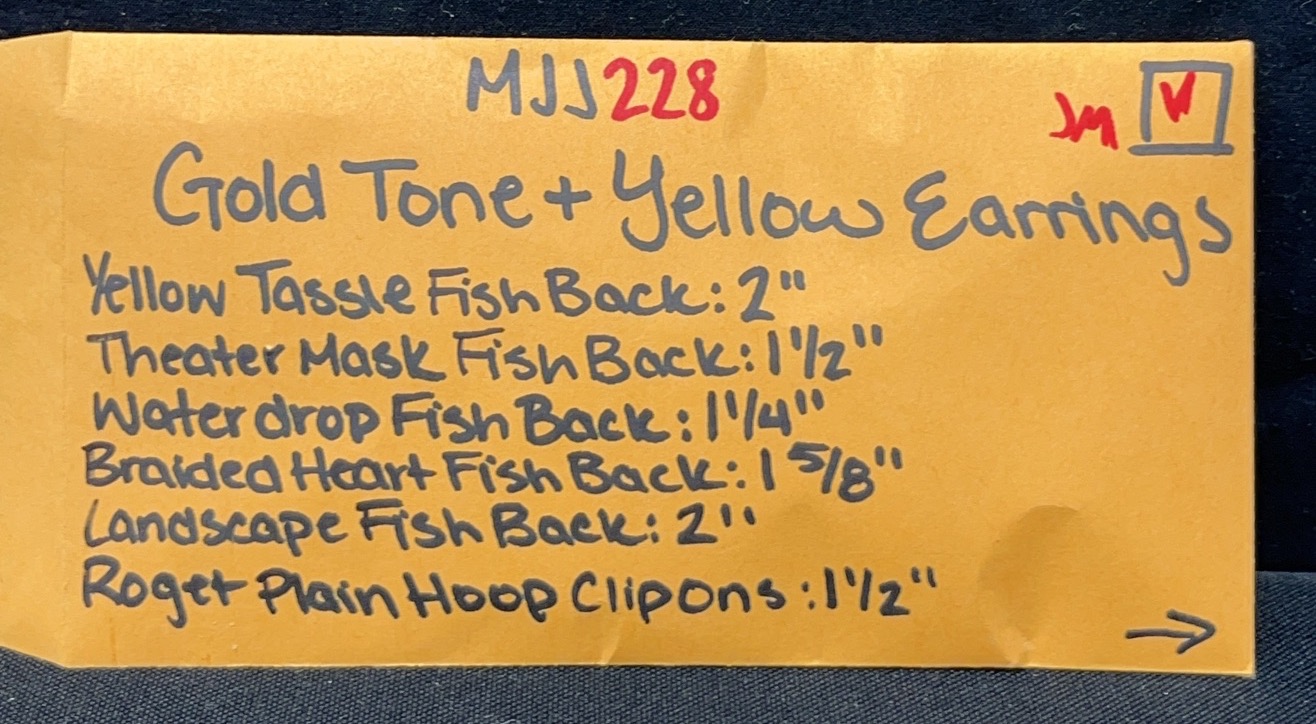 MJJ228
JM W
Gold Tone + Yellow Earrings
Yellow Tassle Fish Back: 2"
Theater Mask Fish Back: 1 1/2"
Waterdrop Fish Back: 1 1/4"
Braided Heart Fish Back: 1 5/8"
Landscape Fish Back: 2"
Roget Plain Hoop Clipons: 1 1/2"
→